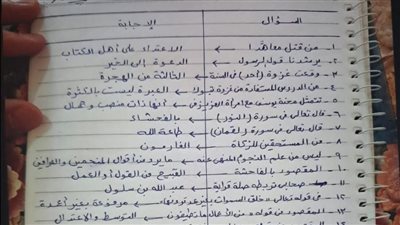 السؤال الإجابة
١- من قتل معاهداً الاعتداء على أهل الكتاب
٢- يرشدنا قول الرسول الدعوة إلى الخير
٣- وقعت غزوة (أحد) في السنة الثالثة من الهجرة
٤- من الدروس المستفادة من غزوة العبرة ليست بالكثرة
٥- تتمثل محنة يوسف مع امرأة العزيز في أنها ذات منصب وجمال
٦- قال تعالى في سورة (النور) بالفحشاء
٧- قال تعالى في سورة (لقمان) طاعة الله
٨- من المستحقين للزكاة الغارمون
٩- ليس من علم النجوم المنهي عنه ما يرد من أقوال المنجمين والعرافين
١٠- المقصود بالفاحشة القبيح من القول أو العمل
١١- صحابي تربطه صلة قرابة عبد الله بن سلول
١٢- في قوله تعالى وخلق السموات بغير عمد ترونها مرفوعة بغير أعمدة
١٣- المقصود في قوله من الأعمال ما تطيقون التوسط والاعتدال